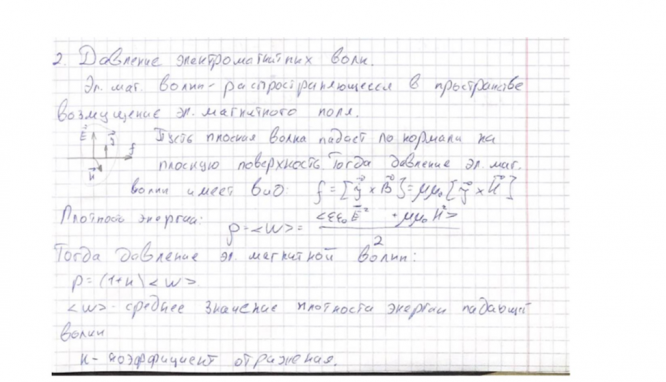 2. Давление электромагнитных волн.
Эл. маг. волны - распространяющееся в пространстве
возмущение эл. магнитного поля.
E⃗ j⃗ f H⃗
Пусть плоская волна падает по нормали на
плоскую поверхность. Тогда давление эл. маг.
волны имеет вид: f = [j⃗ × B⃗] = μμ₀ [j⃗ × H⃗]
Плотность энергии: p = <w> = <εε₀E² + μμ₀H²> / 2
Тогда давление эл магнитной волны:
p = (1+к) <w>
<w> - среднее значение плотности энергии падающей
волны
к - коэффициент отражения.